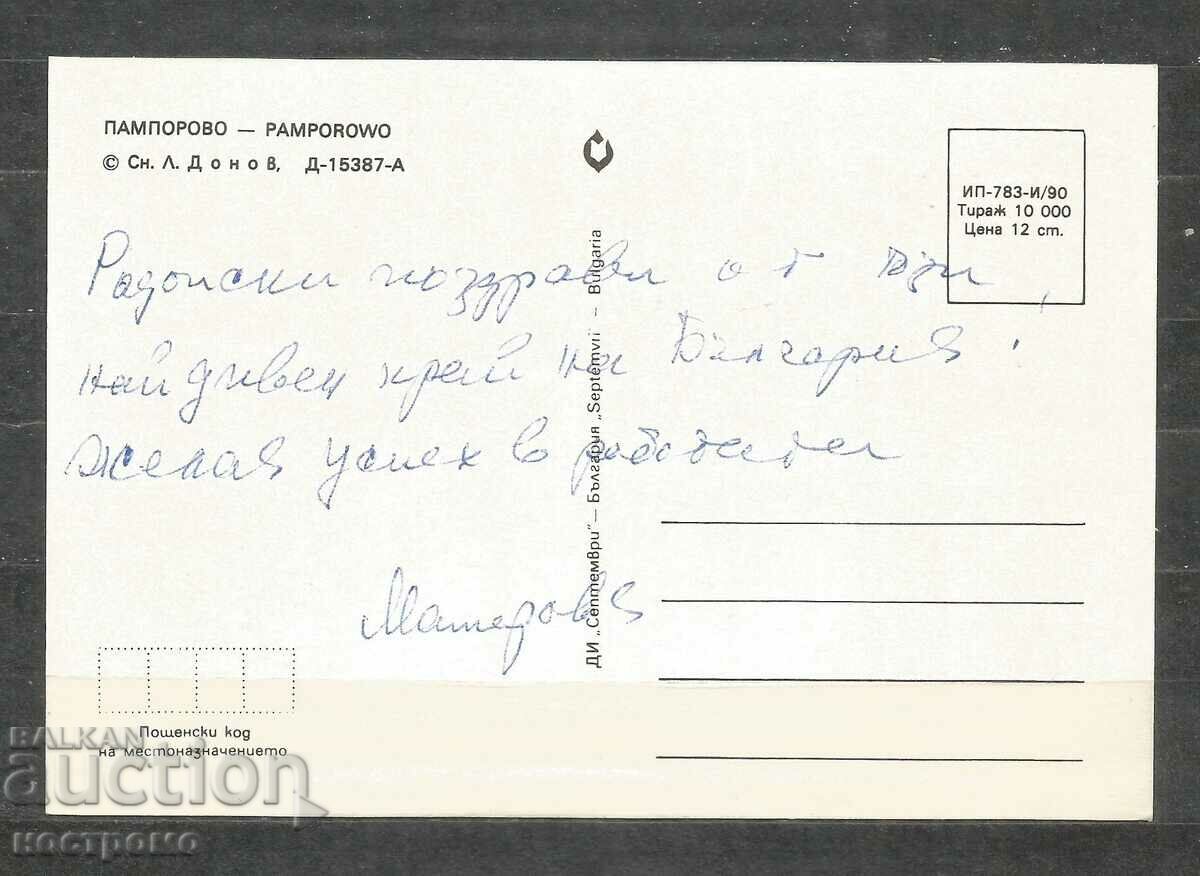 ПАМПОРОВО — PAMPOROWO
© Сн. Л. Донов, Д-15387-А
ИП-783-И/90
Тираж 10 000
Цена 12 ст.
поздрави от този
най дивен край на България!
желая успех в работата
ДИ „Септември" — България „Septemvri" - Bulgaria
Пощенски код
на местоназначението
BALKAN
auction
костромо